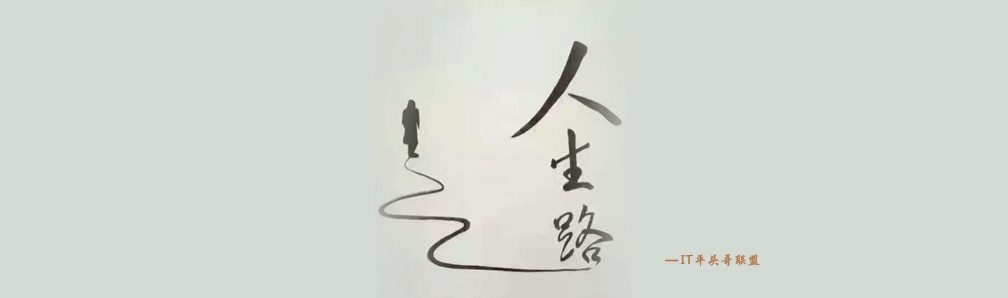 人生路
—IT平头哥联盟